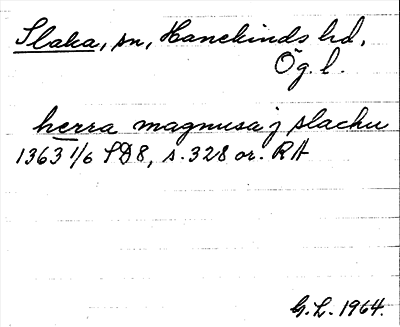 Slaka, sn, Hanekinds hd,
Ög. l.
herra magnusa j slacku
1363 1/6 SD8, s. 328 or. RA
G. L. 1964.